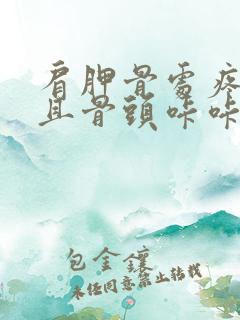 肩胛骨處疼
且骨頭咔咔
包金鑲
未經同意禁止轉載